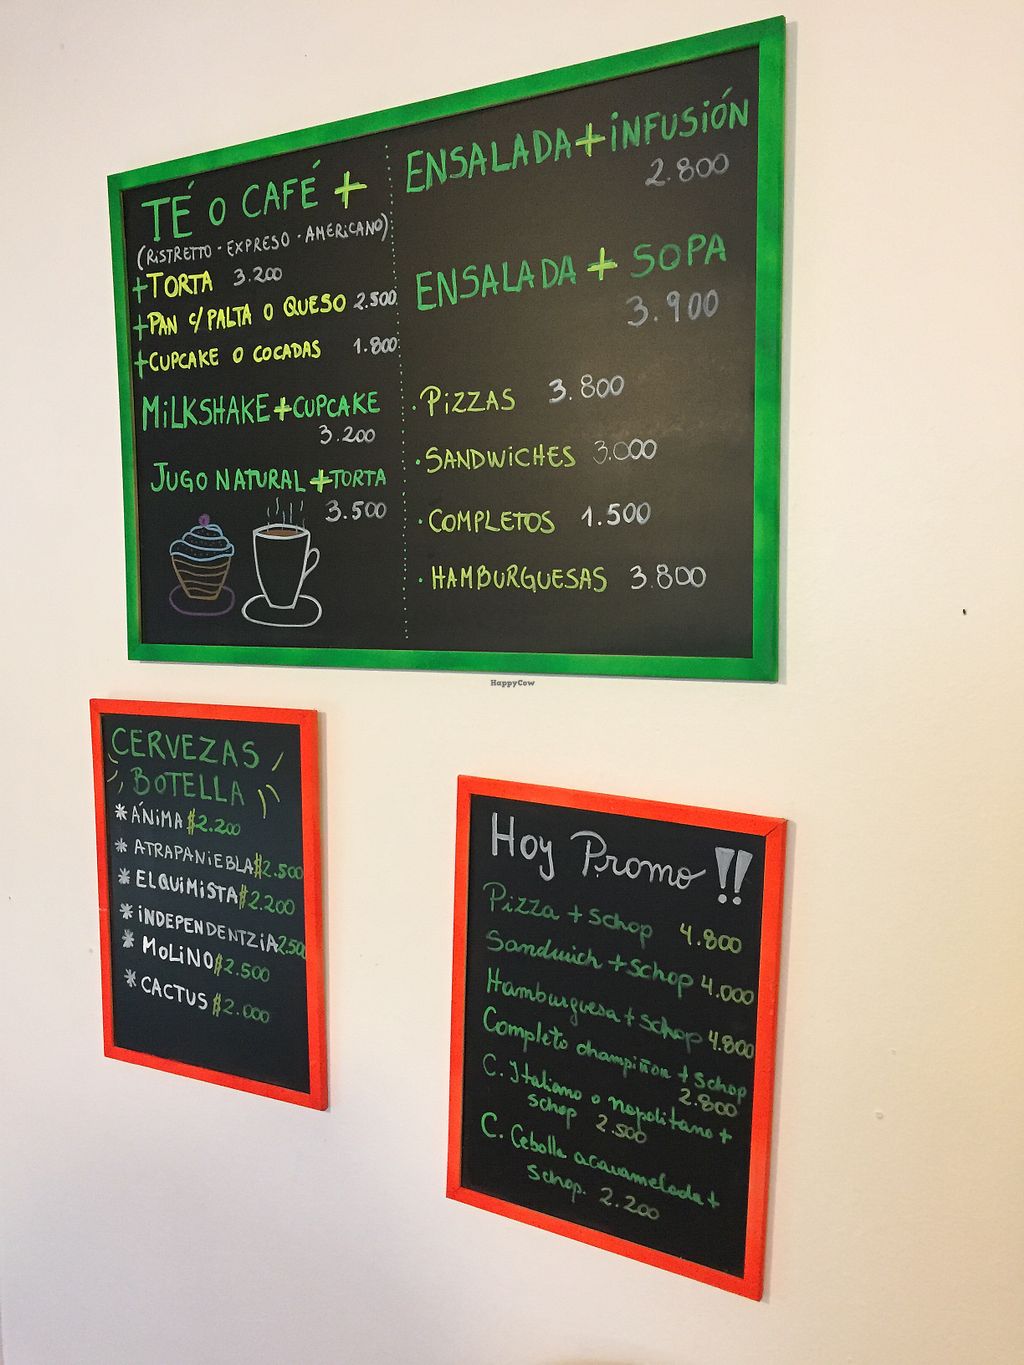 TÉ O CAFÉ +
(RISTRETTO - EXPRESO - AMERICANO)
+TORTA 3.200
+PAN C/PALTA O QUESO 2.500
+CUPCAKE O COCADAS 1.800
MILKSHAKE +CUPCAKE
3.200
JUGO NATURAL +TORTA
3.500
ENSALADA+INFUSIÓN
2.800
ENSALADA + SOPA
3.900
· PIZZAS 3.800
· SANDWICHES 3.000
· COMPLETOS 1.500
· HAMBURGUESAS 3.800
HappyCow
CERVEZAS
BOTELLA
* ÁNIMA $2.200
* ATRAPANIEBLA $2.500
* ELQUIMISTA $2.200
* INDEPENDENTZIA 2.500
* MOLINO $2.500
* CACTUS $2.000
Hoy Promo !!
Pizza + schop 4.800
Sandwich + schop 4.000
Hamburguesa + schop 4.800
Completo champiñon + schop
2.800
C. Italiano o napolitano +
schop 2.500
C. Cebolla acaramelada +
schop. 2.200